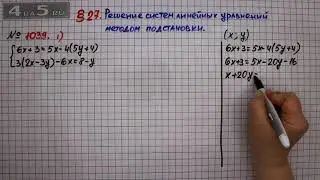 4GA5RU
§27. Решение систем линейных уравнений методом подстановки.
№ 1039. 1)
{6x+3=5x-4(5y+4)
{3(2x-3y)-6x=8-y
(x; y)
6x+3=5x-4(5y+4)
6x+3=5x-20y-16
x+20y=